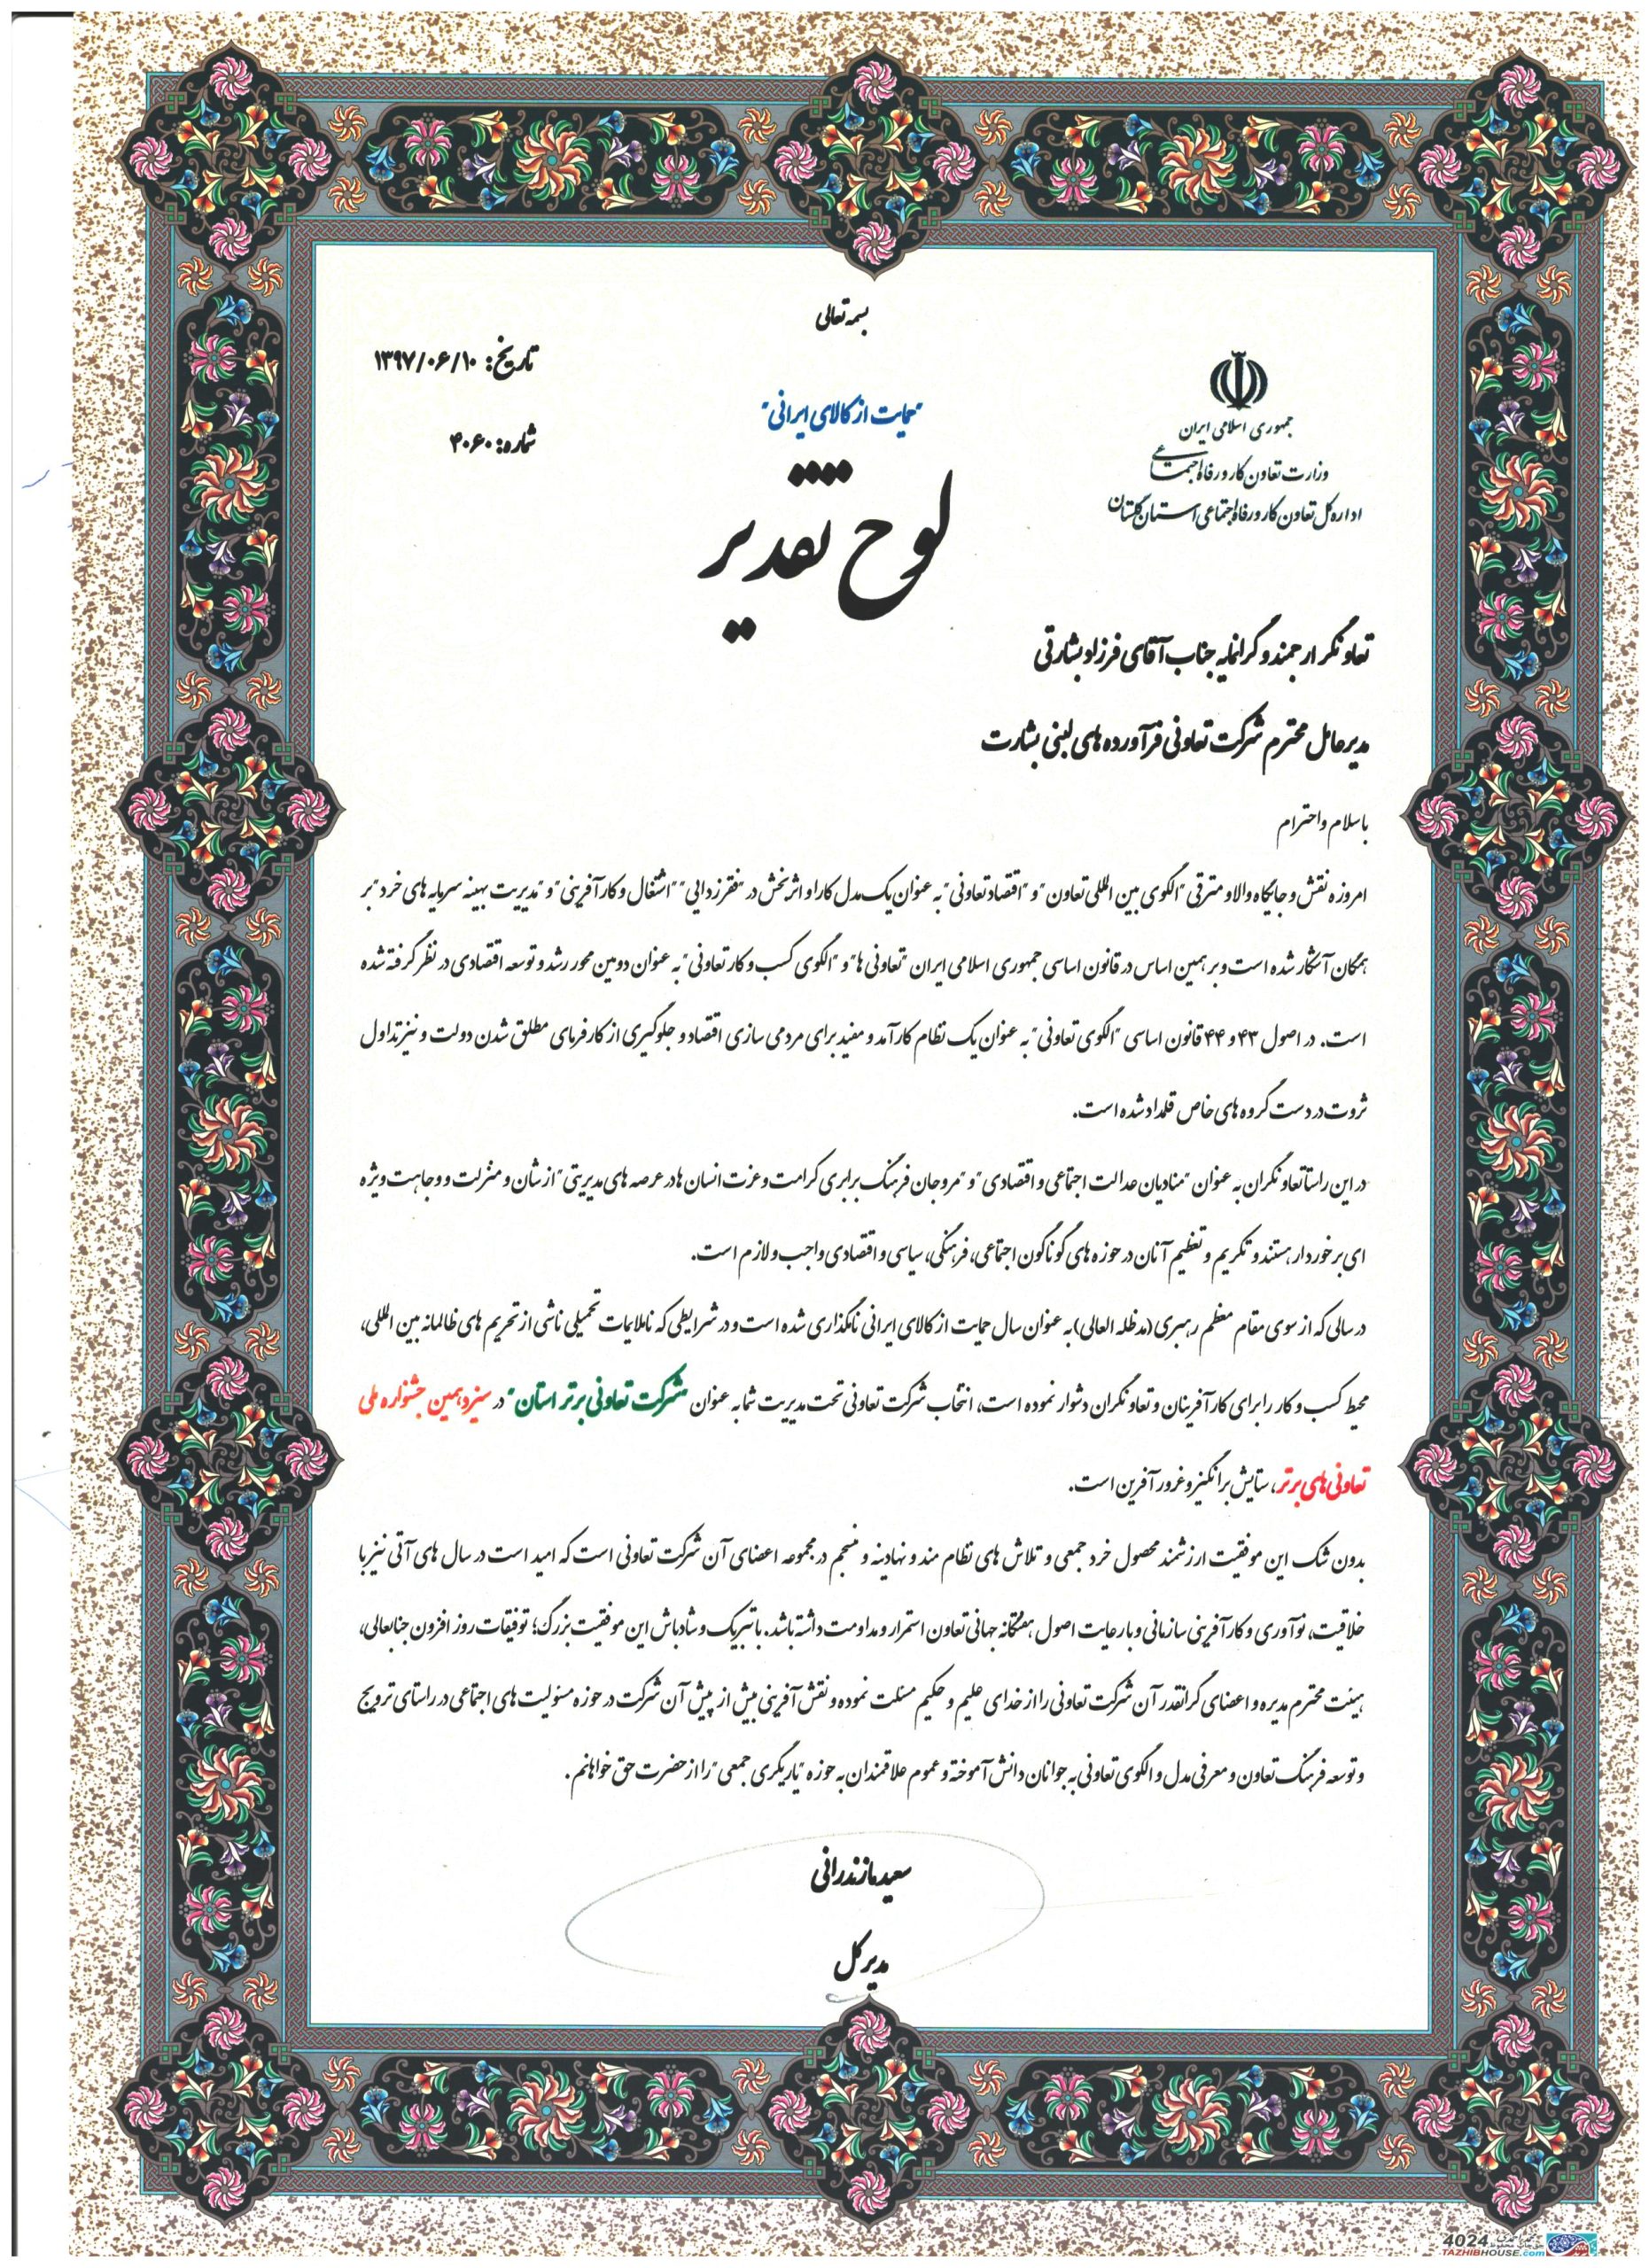 بسمه تعالی
تاریخ: ۱۳۹۷/۰۶/۱۰
شماره: ۴۰۶۰
"حمایت از کالای ایرانی"
جمهوری اسلامی ایران
وزارت تعاون کار و رفاه اجتماعی
اداره کل تعاون کار و رفاه اجتماعی استان گلستان
لوح تقدیر
تعاونگر ارجمند و گرانمایه جناب آقای فرزاد بشارتی
مدیرعامل محترم شرکت تعاونی فرآورده های لبنی بشارت
با سلام و احترام
امروزه نقش و جایگاه والا و مترقی "الگوی بین المللی تعاون" و "اقتصاد تعاونی" به عنوان یک مدل کارا و اثربخش در "فقرزدایی" "اشتغال و کارآفرینی" و "مدیریت بهینه سرمایه های خرد" بر
همگان آشکار شده است و بر همین اساس در قانون اساسی جمهوری اسلامی ایران "تعاونی ها" و "الگوی کسب و کار تعاونی" به عنوان دومین محور رشد و توسعه اقتصادی در نظر گرفته شده
است. در اصول ۴۳ و ۴۴ قانون اساسی "الگوی تعاونی" به عنوان یک نظام کارآمد و مفید برای مردمی سازی اقتصاد و جلوگیری از کارفرمای مطلق شدن دولت و نیز تداول
ثروت در دست گروه های خاص قلمداد شده است.
در این راستا تعاونگران به عنوان "منادیان عدالت اجتماعی و اقتصادی" و "مروجان فرهنگ برابری کرامت و عزت انسان ها در عرصه های مدیریتی" از شان و منزلت و وجاهت ویژه
ای برخوردار هستند و تکریم و تعظیم آنان در حوزه های گوناگون اجتماعی، فرهنگی، سیاسی و اقتصادی واجب و لازم است.
در سالی که از سوی مقام معظم رهبری (مدظله العالی) به عنوان سال حمایت از کالای ایرانی نامگذاری شده است و در شرایطی که ناملایمات تحمیلی ناشی از تحریم های ظالمانه بین المللی،
محیط کسب و کار را برای کارآفرینان و تعاونگران دشوار نموده است، انتخاب شرکت تعاونی تحت مدیریت شما به عنوان "شرکت تعاونی برتر استان" در سیزدهمین جشنواره ملی
تعاونی های برتر، ستایش برانگیز و غرورآفرین است.
بدون شک این موفقیت ارزشمند محصول خرد جمعی و تلاش های نظام مند و نهادینه و منسجم در مجموعه اعضای آن شرکت تعاونی است که امید است در سال های آتی نیز با
خلاقیت، نوآوری و کارآفرینی سازمانی و با رعایت اصول هفتگانه جهانی تعاون استمرار و مداومت داشته باشد. با تبریک و شادباش این موفقیت بزرگ؛ توفیقات روزافزون جنابعالی،
هیئت محترم مدیره و اعضای گرانقدر آن شرکت تعاونی را از خدای علیم و حکیم مسئلت نموده و نقش آفرینی بیش از پیش آن شرکت در حوزه مسئولیت های اجتماعی در راستای ترویج
و توسعه فرهنگ تعاون و معرفی مدل و الگوی تعاونی به جوانان دانش آموخته و عموم علاقمندان به حوزه "یاریگری جمعی" را از حضرت حق خواهانم.
سعید مازندرانی
مدیر کل
4024
TAZHIBHOUSE.com